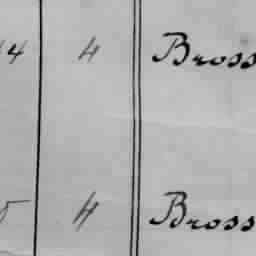 4 H Bross
5 H Bross